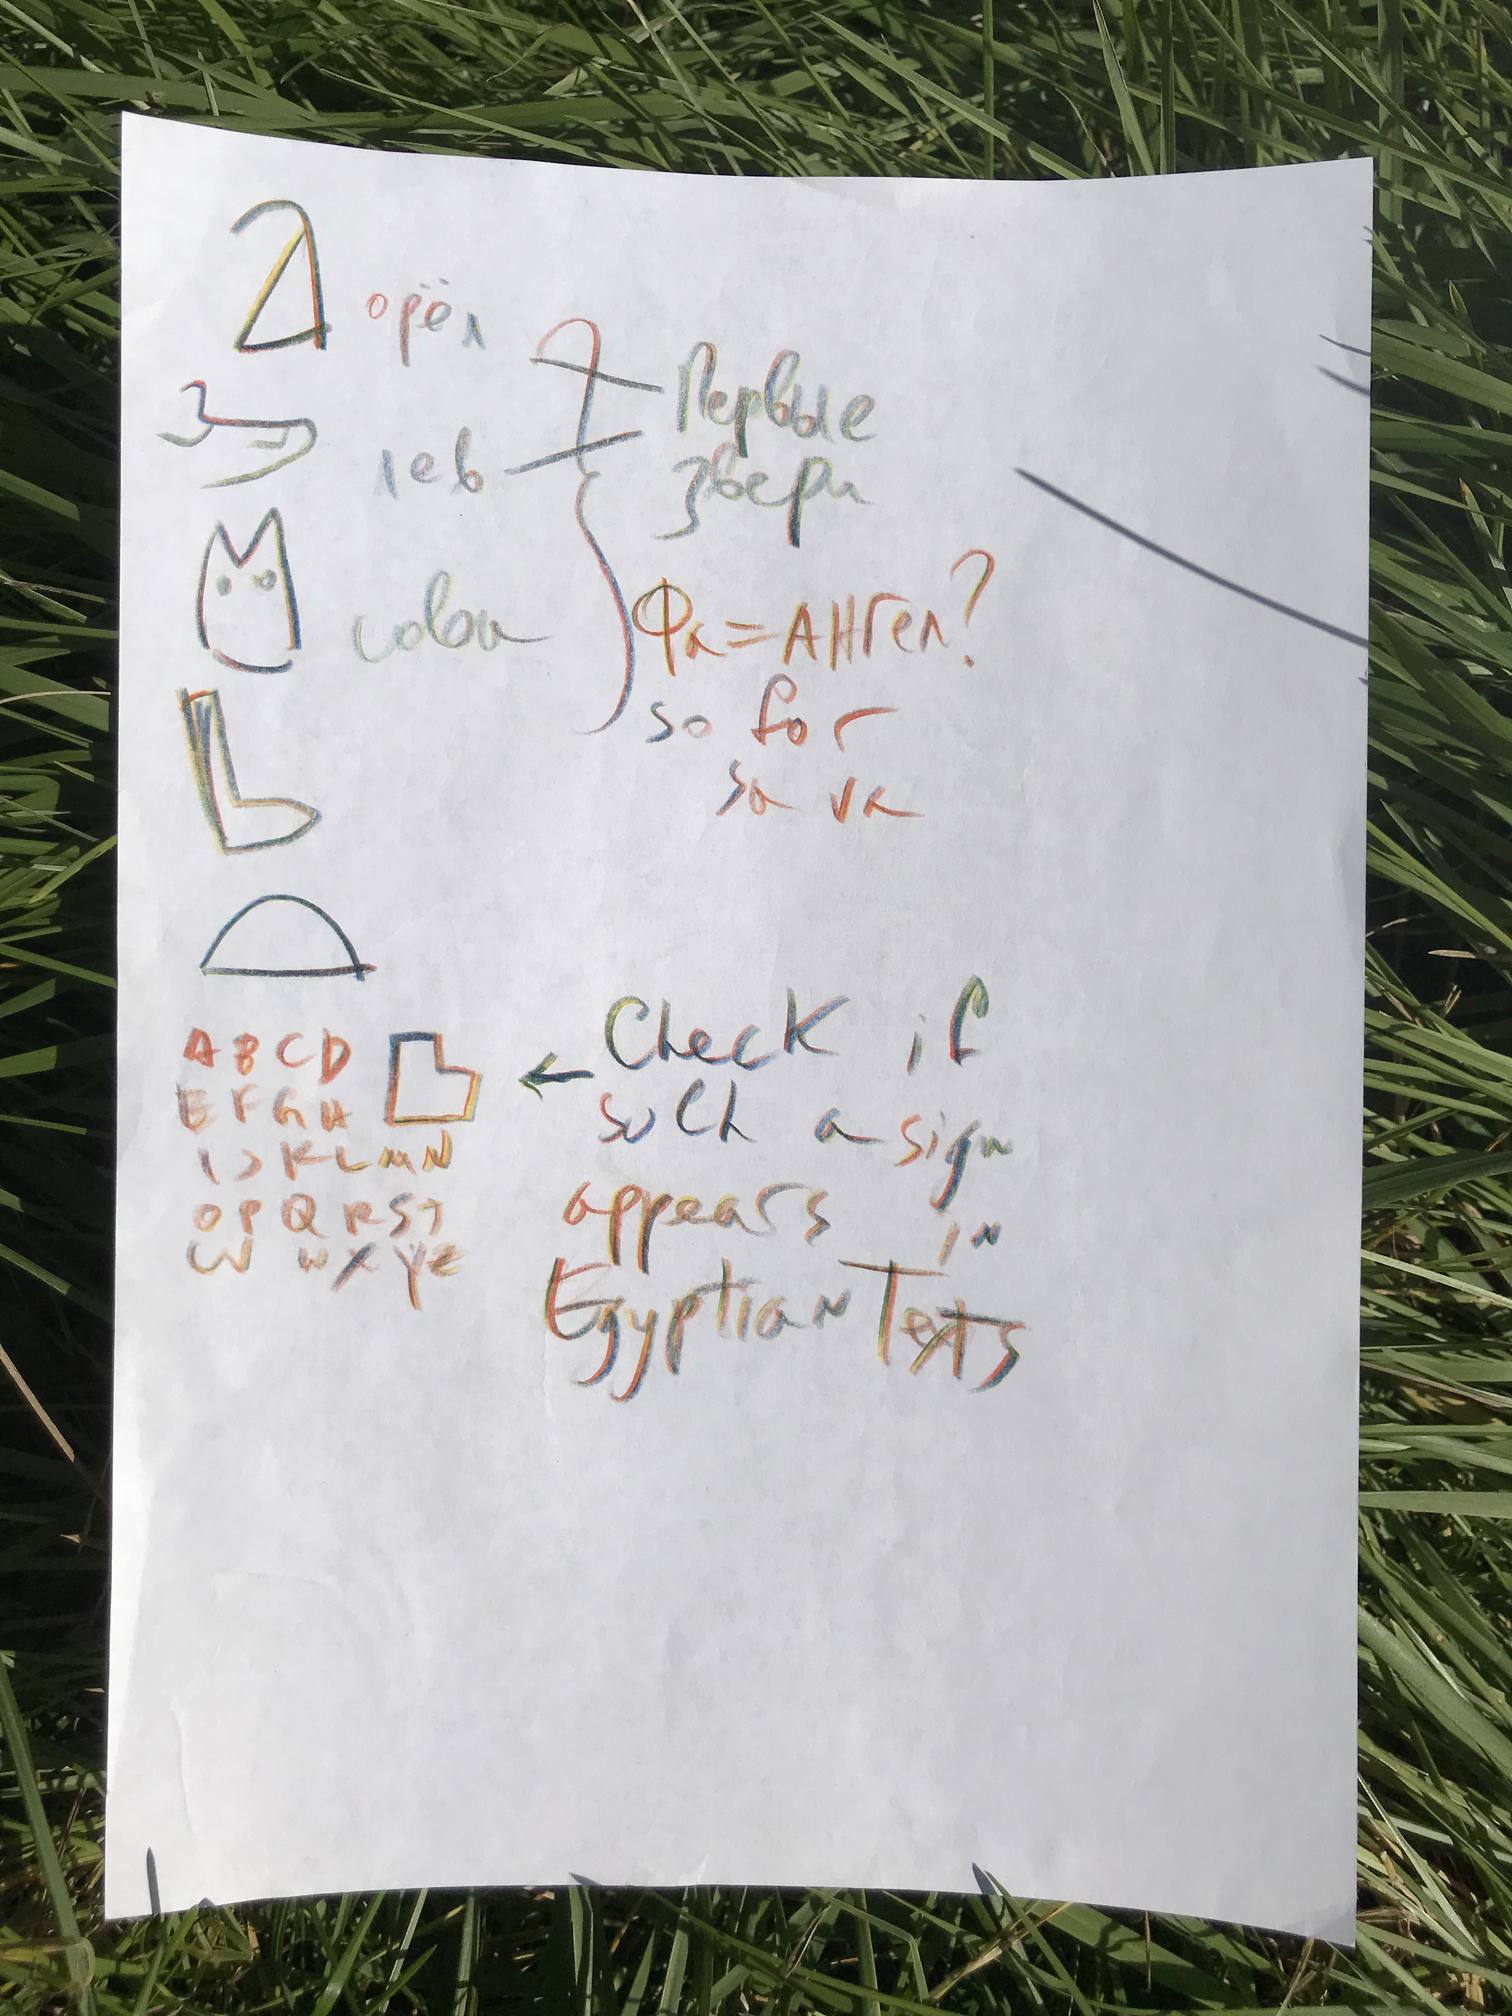 орёл
лев
Первые
звери
сова
Фа = Ангел?
so for
sa va
A B C D
E F G H
I J K L M N
O P Q R S T
W W X Y Z
← Check if
such a sign
appears in
Egyptian Texts